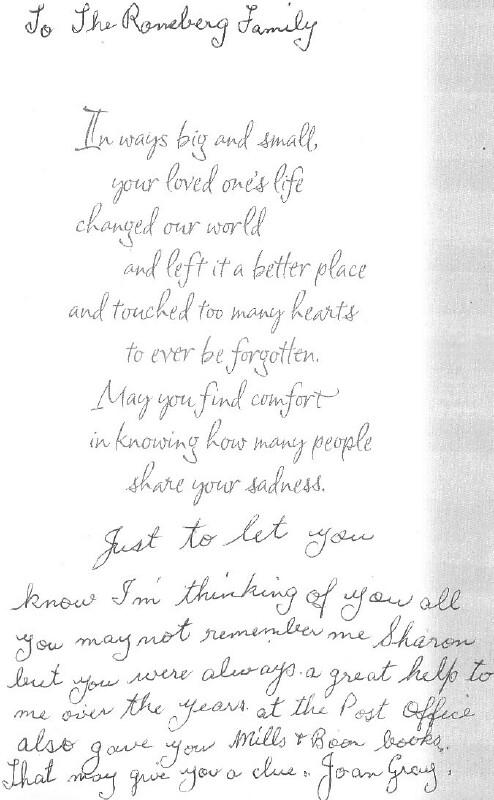 To The Roneberg Family
In ways big and small,
your loved one's life
changed our world
and left it a better place
and touched too many hearts
to ever be forgotten.
May you find comfort
in knowing how many people
share your sadness.
Just to let you
know I'm thinking of you all
you may not remember me Sharon
but you were always a great help to
me over the years at the Post Office
also gave you Mills & Boon books.
That may give you a clue. Joan Gray.